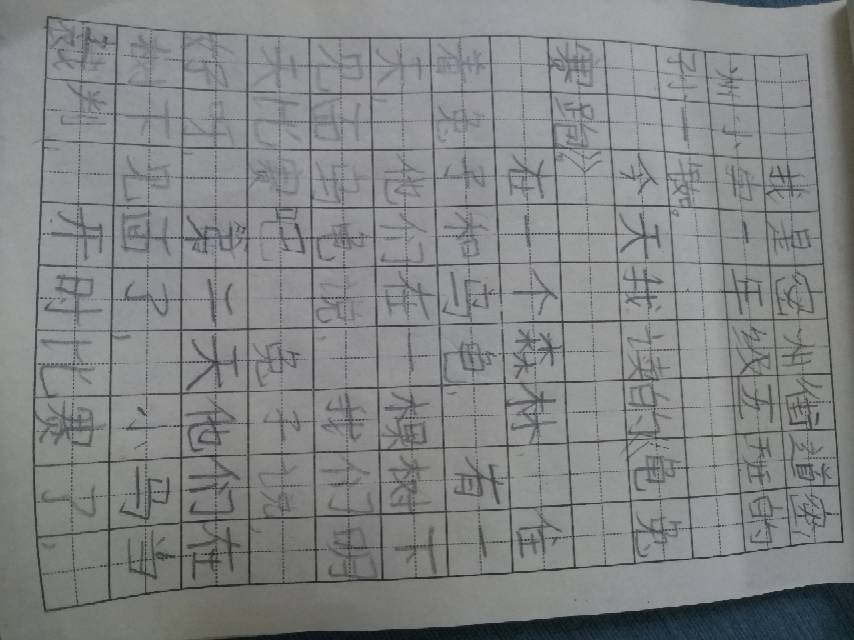 我是密州街道密
州小学一年级五班的
孙一懿。
今天我读的《龟兔
赛跑》
在一个森林 住
着兔子和乌龟,有一
天,他们在一棵树下
见面乌龟说,我们明
天比赛吧 兔子说,
好 第二天他们在
树下见面了,小马当
裁判 开时比赛了,